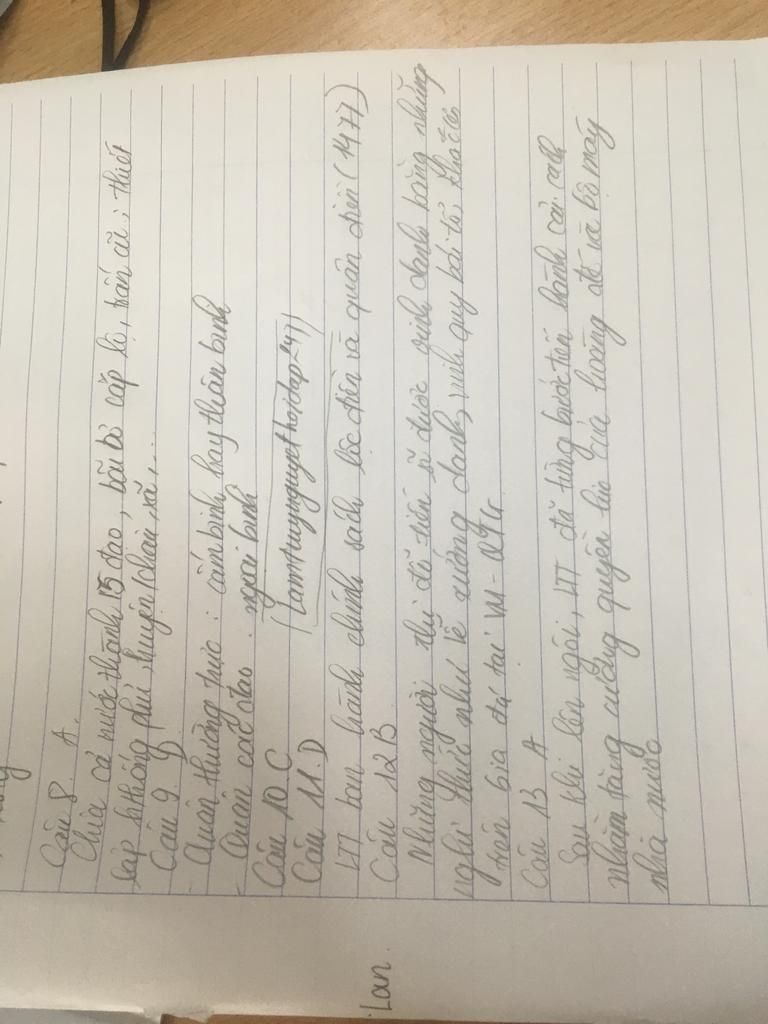 Câu 8. A.
Chia cả nước thành 15 đạo, bãi bỏ cấp lộ, trấn cũ; thiết
lập hthống phủ, huyện/châu, xã,...
Câu 9. D
Quân thường trực: cấm binh hay thân binh
Quân các đạo: ngoại binh
Câu 10. C
(lamtuynguyethoidap247)
Câu 11. D
LTT ban hành chính sách lộc điền và quân điền (1477)
Câu 12 B
Những người thi đỗ tiến sĩ được vinh danh bằng những
nghi thức như lễ xướng danh, vinh quy bái tổ, khắc tên
trên bia đá tại VM-QTG
Câu 13 A
Sau khi lên ngôi, LTT đã từng bước tiến hành cải cách
nhằm tăng cường quyền lực của hoàng đế và bộ máy
nhà nước
Lan